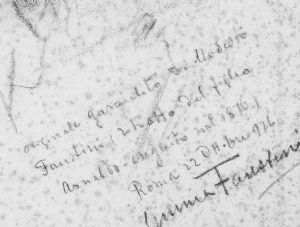 originale garantito di Modesto
Faustini, ritratto del figlio
Arnaldo - eseguito nel 1890
Roma 22 Ott.bre 926
Faustini